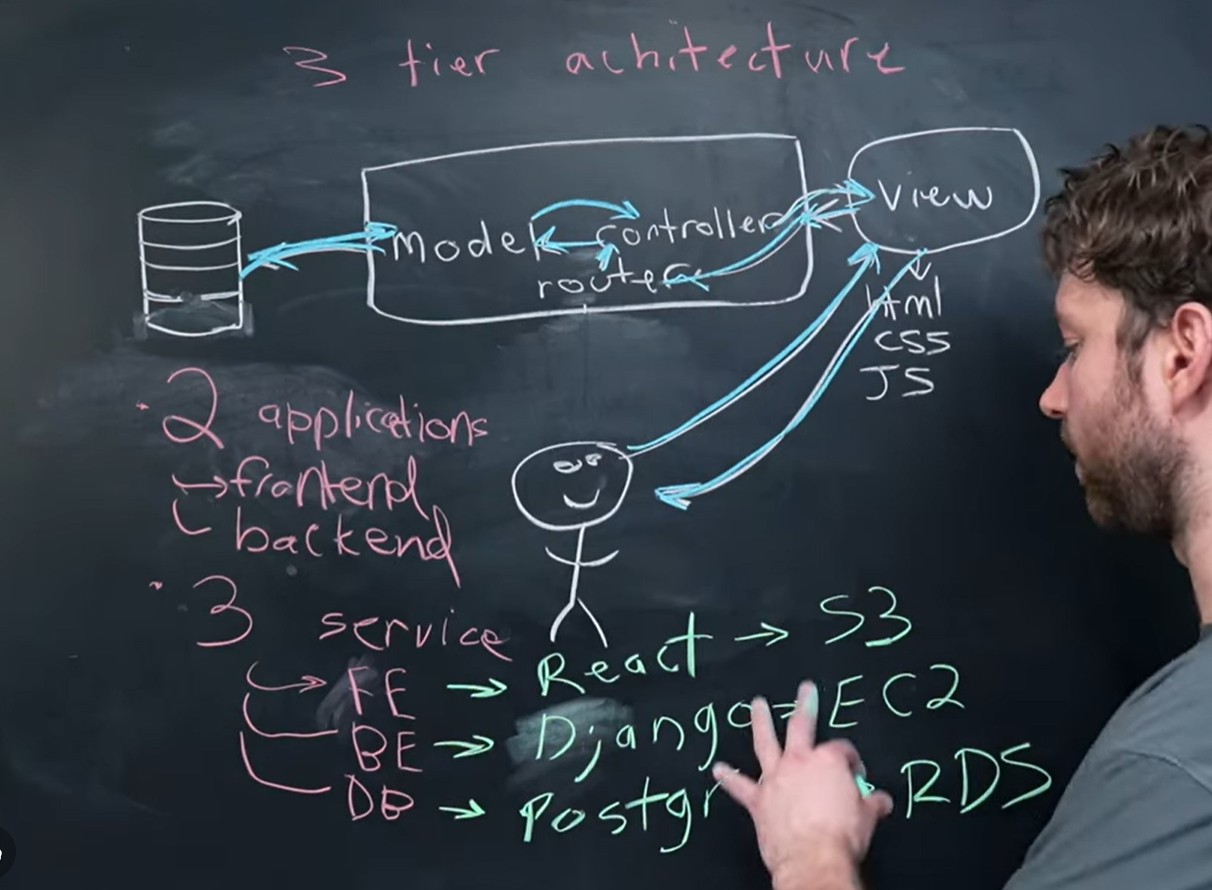 3 tier achitecture
Model controller
router
View
html
CSS
JS
2 applications
frontend
backend
3 service
FE → React → S3
BE → Django → EC2
DB → RDS